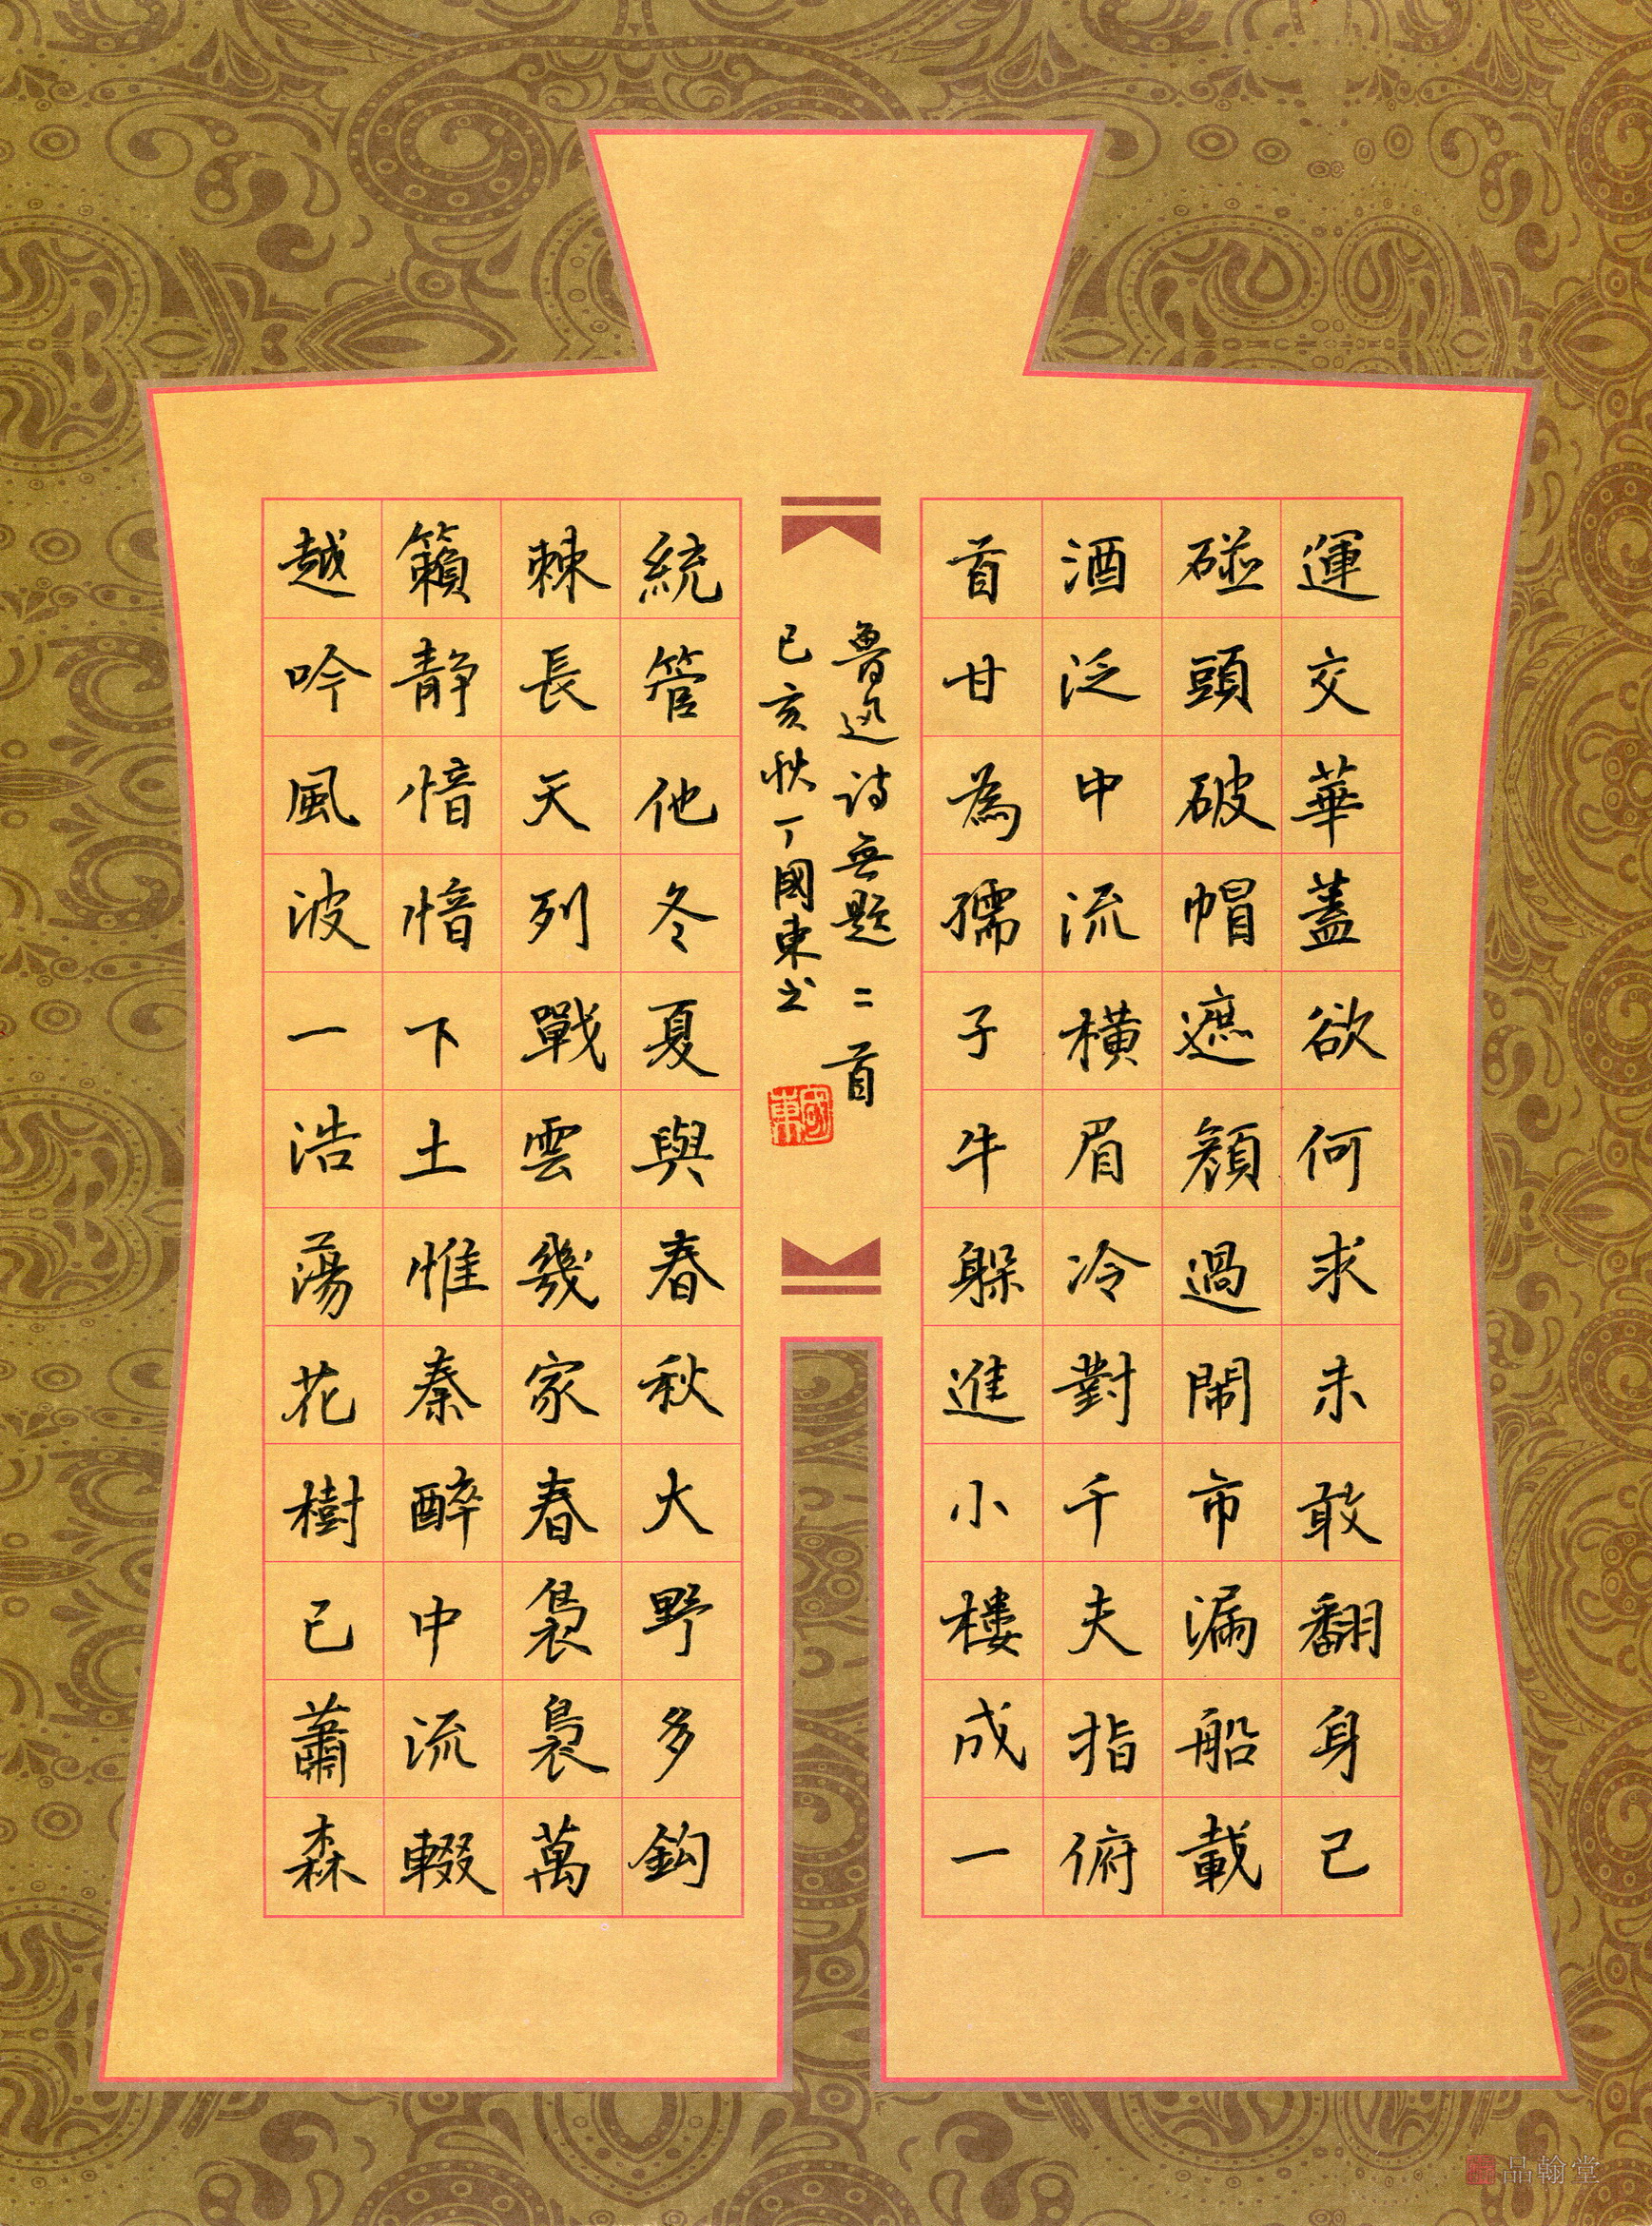 運交華蓋欲何求未敢翻身已
碰頭破帽遮顏過鬧市漏船載
酒泛中流橫眉冷對千夫指俯
首甘為孺子牛躲進小樓成一
統管他冬夏與春秋大野多鈎
棘長天列戰雲幾家春裊裊萬
籟靜愔愔下土惟秦醉中流輟
越吟風波一浩蕩花樹已蕭森
魯迅詩無題二首
己亥秋丁國東书
國東
品翰堂